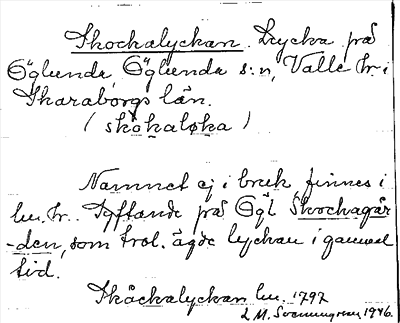 Skockalyckan. Lycka på
Öglunda, Öglunda s:n, Valle hr i
Skaraborgs län.
(skòkaløka)
Namnet ej i bruk, finnes i
hr. Syftande på Ögl Skockagår
-den, som trol. ägde lyckan i gammal
tid.
Skåckalyckan 1797
L. M. Svenningsson 1946.